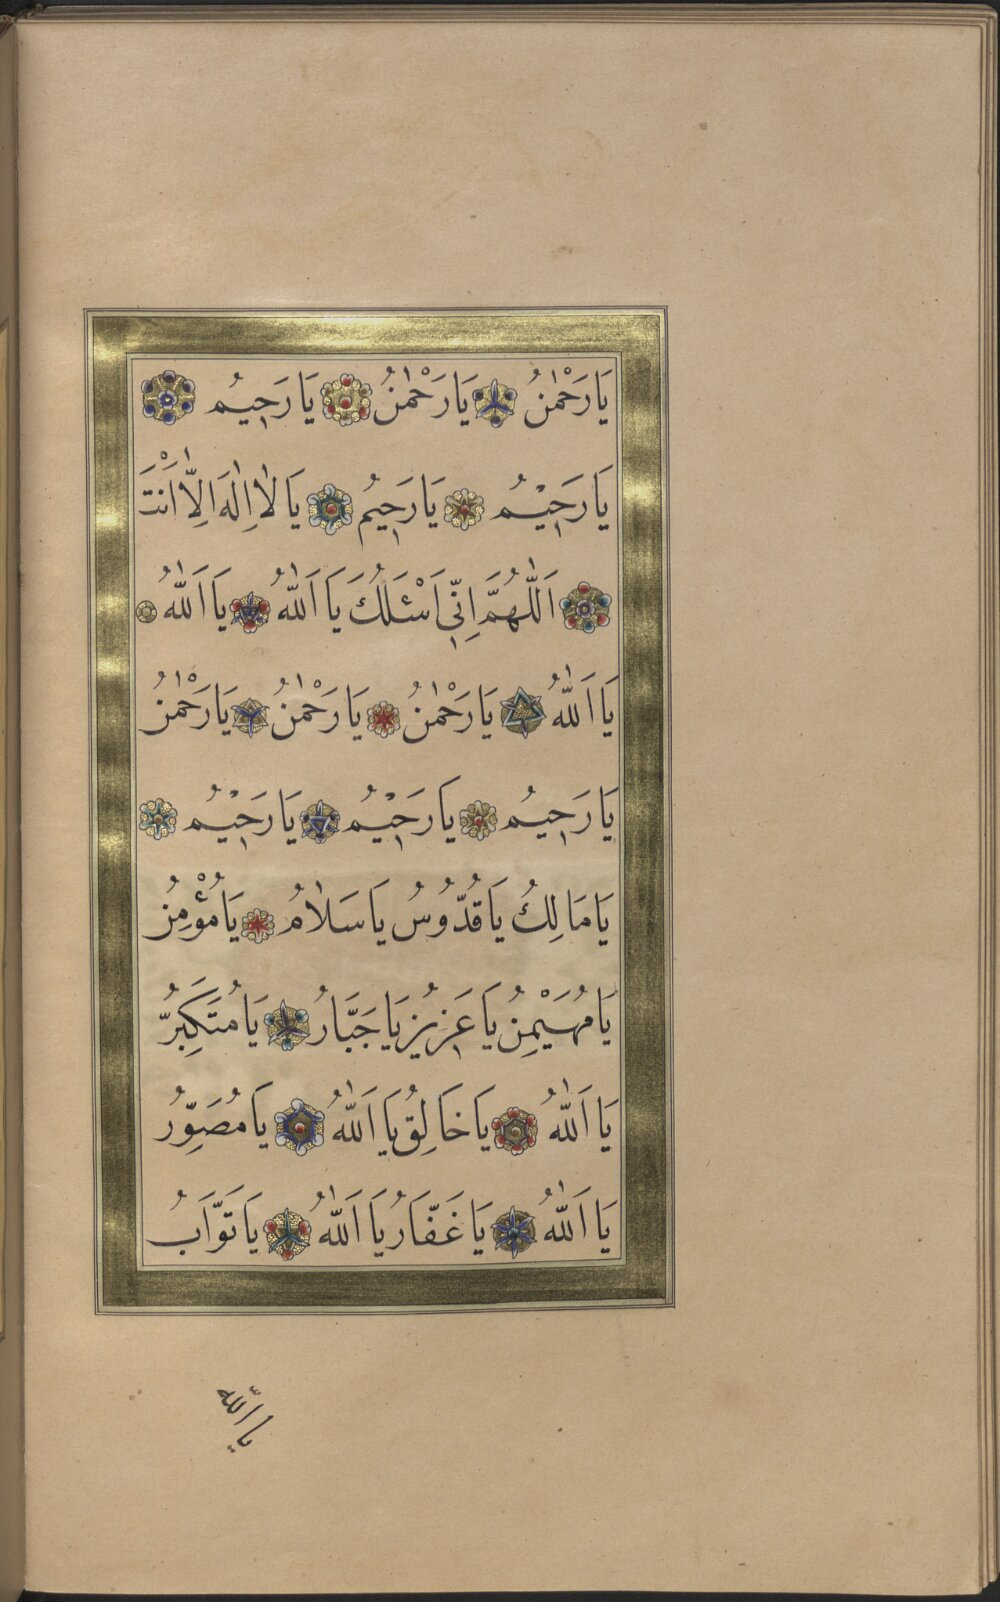 يَا رَحْمٰنُ يَا رَحْمٰنُ يَا رَحِيمُ
يَا رَحِيْمُ يَا رَحِيمُ يَا لَا اِلٰهَ اِلَّا اَنْتَ
اَللّٰهُمَّ اِنِّي اَسْئَلُكَ يَا اَللّٰهُ يَا اَللّٰهُ
يَا اَللّٰهُ يَا رَحْمٰنُ يَا رَحْمٰنُ يَا رَحْمٰنُ
يَا رَحِيمُ يَا رَحِيْمُ يَا رَحِيْمُ
يَا مَالِكُ يَا قُدُّوسُ يَا سَلَامُ يَا مُؤْمِنُ
يَا مُهَيْمِنُ يَا عَزِيزُ يَا جَبَّارُ يَا مُتَكَبِّرُ
يَا اَللّٰهُ يَا خَالِقُ يَا اَللّٰهُ يَا مُصَوِّرُ
يَا اَللّٰهُ يَا غَفَّارُ يَا اَللّٰهُ يَا تَوَّابُ
يا الله